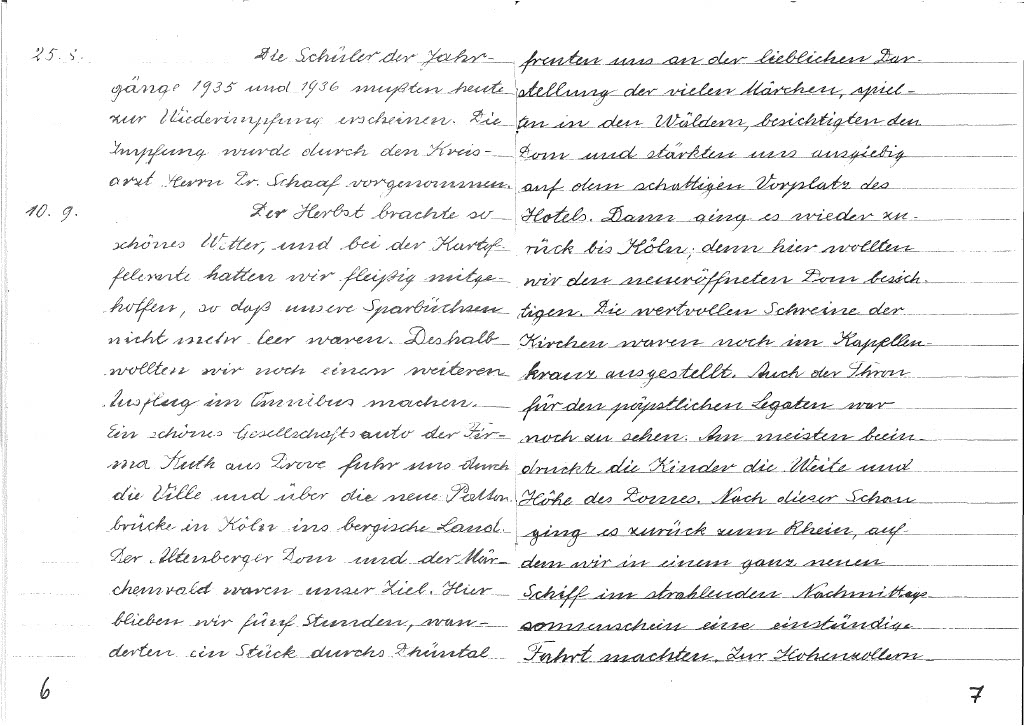 25. 8. Die Schüler der Jahr-
gänge 1935 und 1936 mußten heute
zur Wiederimpfung erscheinen. Die
Impfung wurde durch den Kreis-
arzt Herrn Dr. Schaaf vorgenommen.
10. 9. Der Herbst brachte so
schönes Wetter, und bei der Kartof-
felernte hatten wir fleißig mitge-
holfen, so daß unsere Sparbüchsen
nicht mehr leer waren. Deshalb
wollten wir noch einen weiteren
Ausflug im Omnibus machen.
Ein schönes Gesellschaftsauto der Fir-
ma Kuth aus Drove fuhr uns durch
die Ville und über die neue Patton
brücke in Köln ins bergische Land.
Der Altenberger Dom und der Mär-
chenwald waren unser Ziel. Hier
blieben wir fünf Stunden, wan-
derten ein Stück durchs Dhüntal
6
freuten uns an der lieblichen Dar-
stellung der vielen Märchen, spiel-
ten in den Wäldern, besichtigten den
Dom und stärkten uns ausgiebig
auf dem schattigen Vorplatz des
Hotels. Dann ging es wieder zu-
rück bis Köln; denn hier wollten
wir den neueröffneten Dom besich-
tigen. Die wertvollen Schreine der
Kirchen waren noch im Kapellen-
kranz ausgestellt. Auch der Thron
für den päpstlichen Legaten war
noch zu sehen. Am meisten beein-
druckte die Kinder die Weite und
Höhe des Domes. Nach dieser Schau
ging es zurück zum Rhein, auf
dem wir in einem ganz neuen
Schiff im strahlenden Nachmittags
sonnenschein eine einstündige
Fahrt machten. Zur Hohenzollern
7